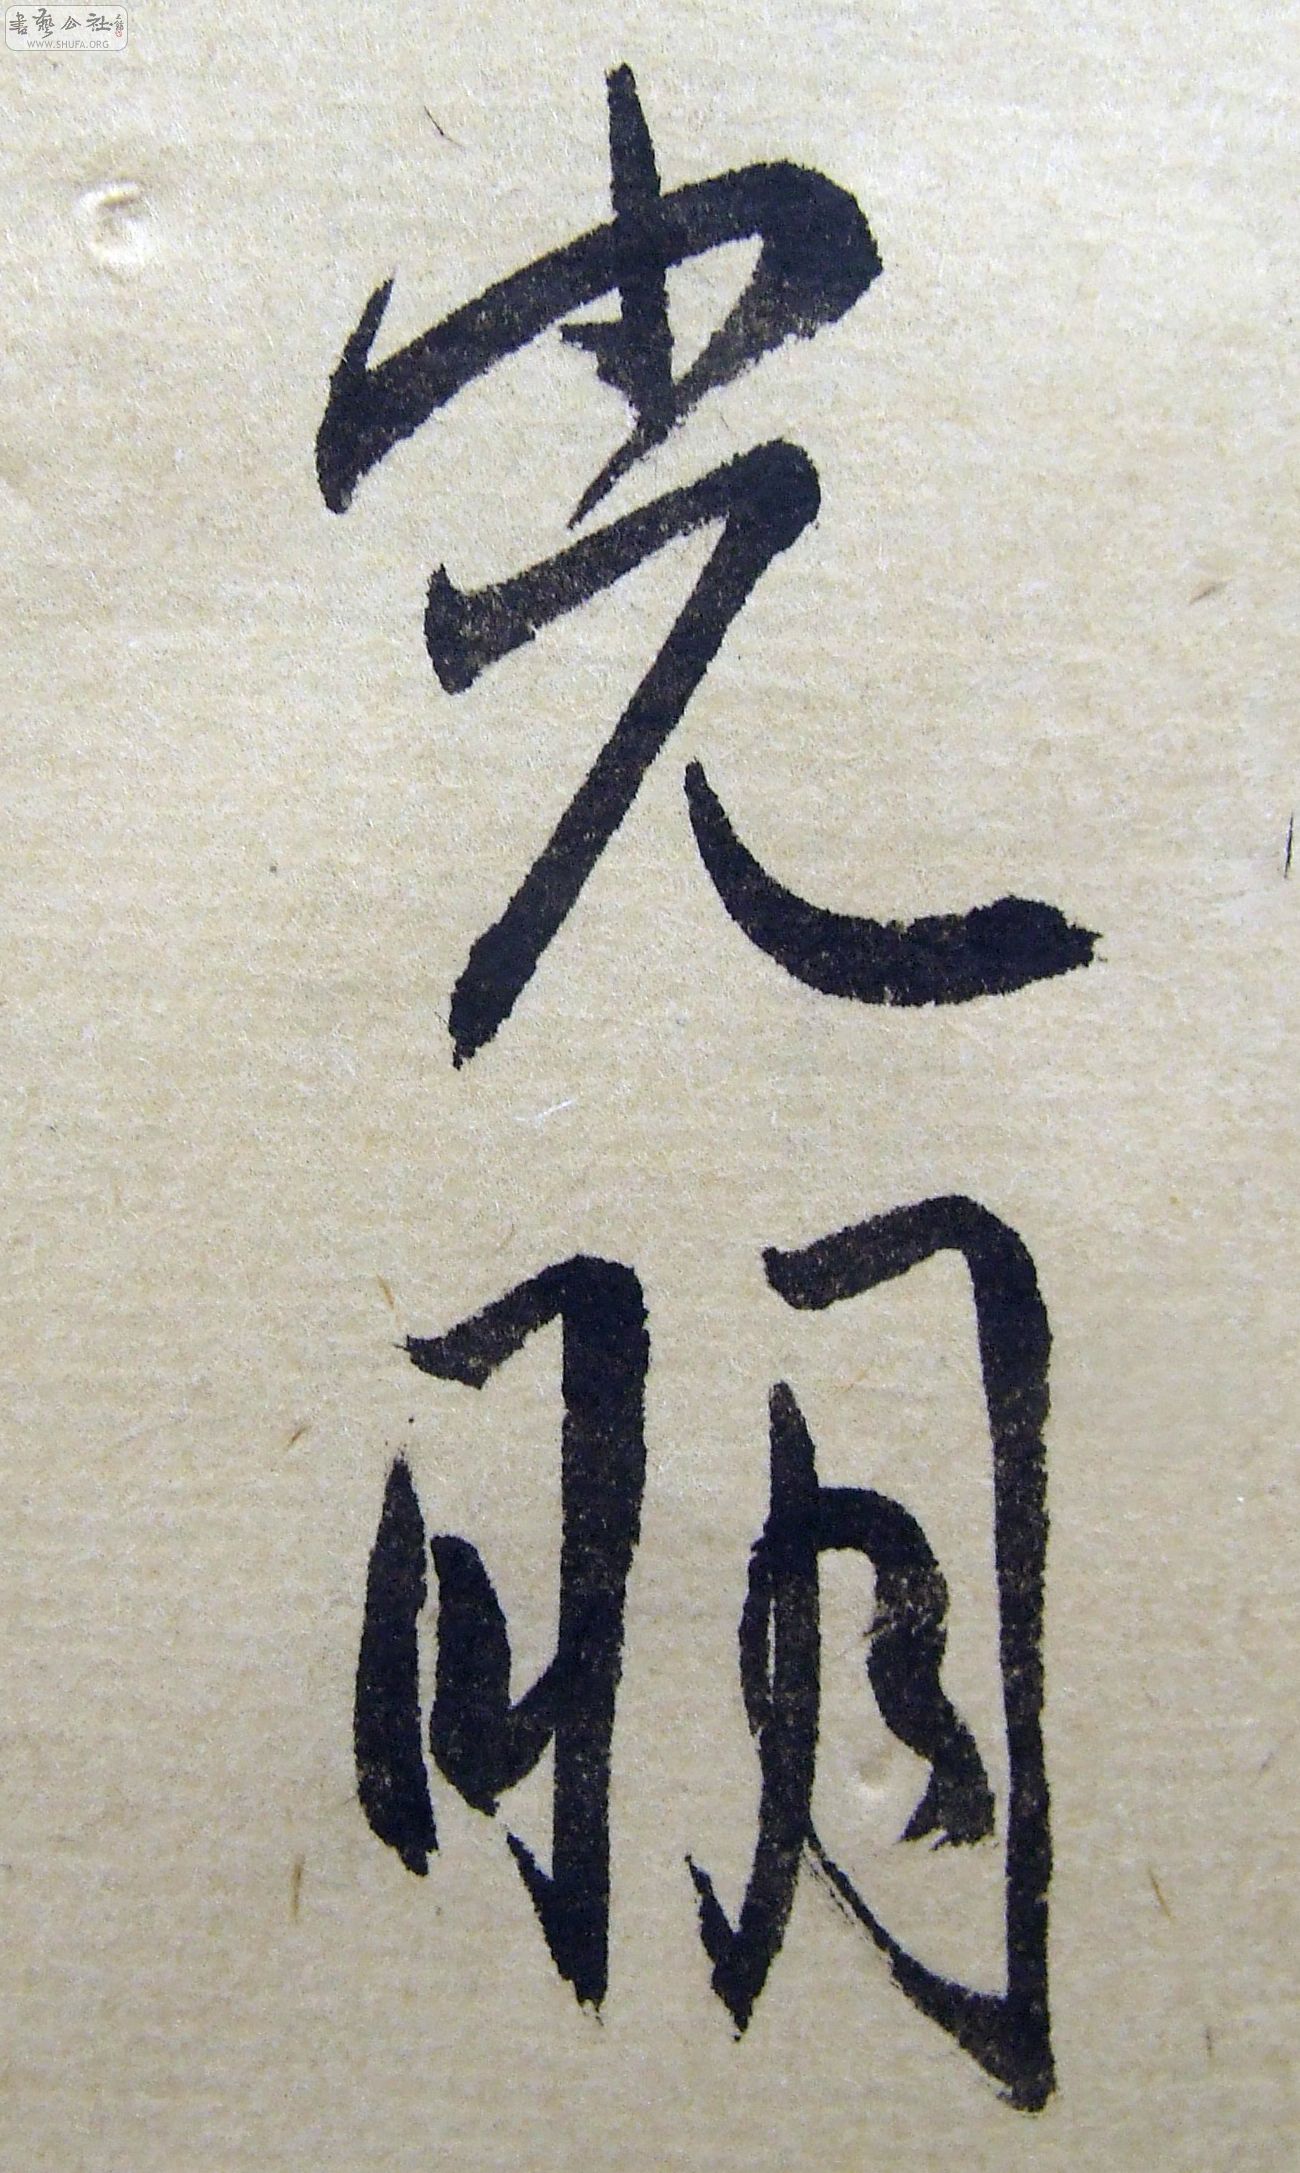 書藝公社
WWW.SHUFA.ORG
光明